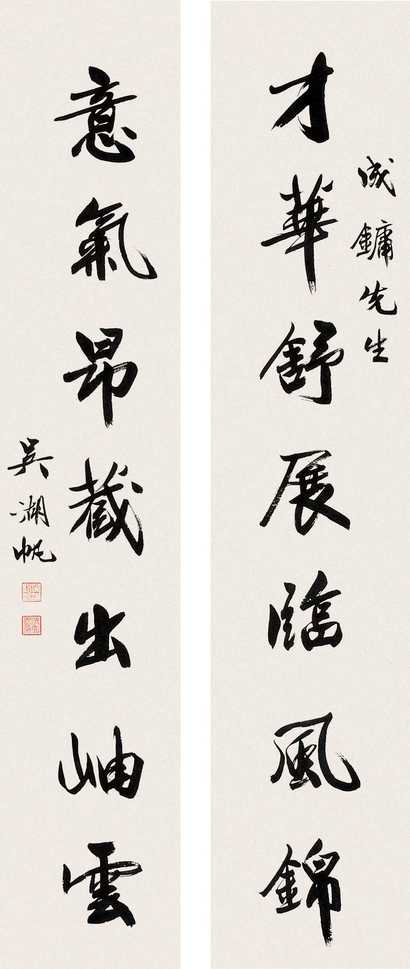 才華舒展臨風錦
成鏞先生
意氣昂藏出岫雲
吳湖帆